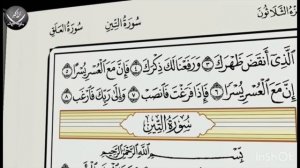 سُورَةُ العَلَقِ سُورَةُ التِّينِ الثَّلَاثُونَ
الَّذِي أَنقَضَ ظَهْرَكَ ٣ وَرَفَعْنَا لَكَ ذِكْرَكَ ٤ فَإِنَّ مَعَ الْعُسْرِ يُسْرًا ٥
إِنَّ مَعَ الْعُسْرِ يُسْرًا ٦ فَإِذَا فَرَغْتَ فَانصَبْ ٧ وَإِلَىٰ رَبِّكَ فَارْغَب ٨
سُورَةُ التِّينِ
بِسْمِ اللَّهِ الرَّحْمَٰنِ الرَّحِيمِ
InShot